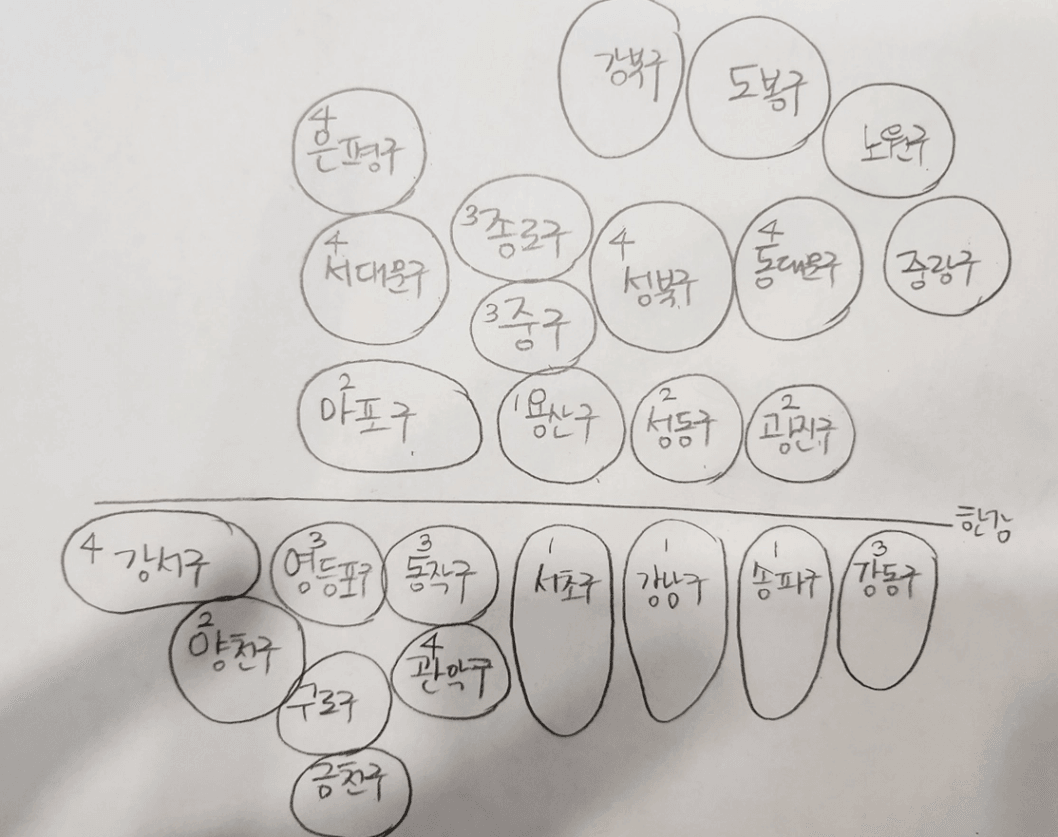 강북구
도봉구
노원구
4 은평구
3 종로구
4 서대문구
4 성북구
4 동대문구
중랑구
3 중구
2 마포구
1 용산구
2 성동구
2 광진구
한강
4 강서구
3 영등포구
3 동작구
1 서초구
1 강남구
1 송파구
3 강동구
2 양천구
4 관악구
구로구
금천구